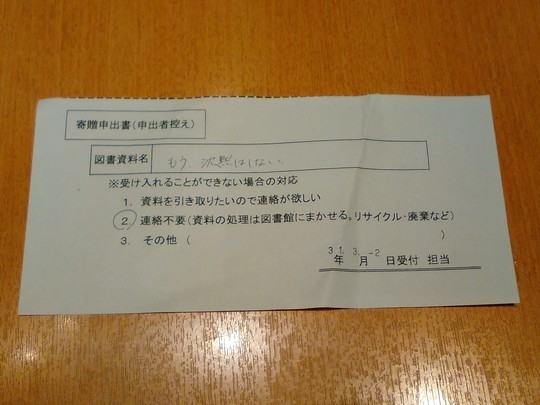 寄贈申出書(申出者控え)
図書資料名 もう、沈黙はしない。
※受け入れることができない場合の対応
1. 資料を引き取りたいので連絡が欲しい
2. 連絡不要(資料の処理は図書館にまかせる。リサイクル・廃棄など)
3. その他( )
31. 3. -2
年 月 日受付 担当